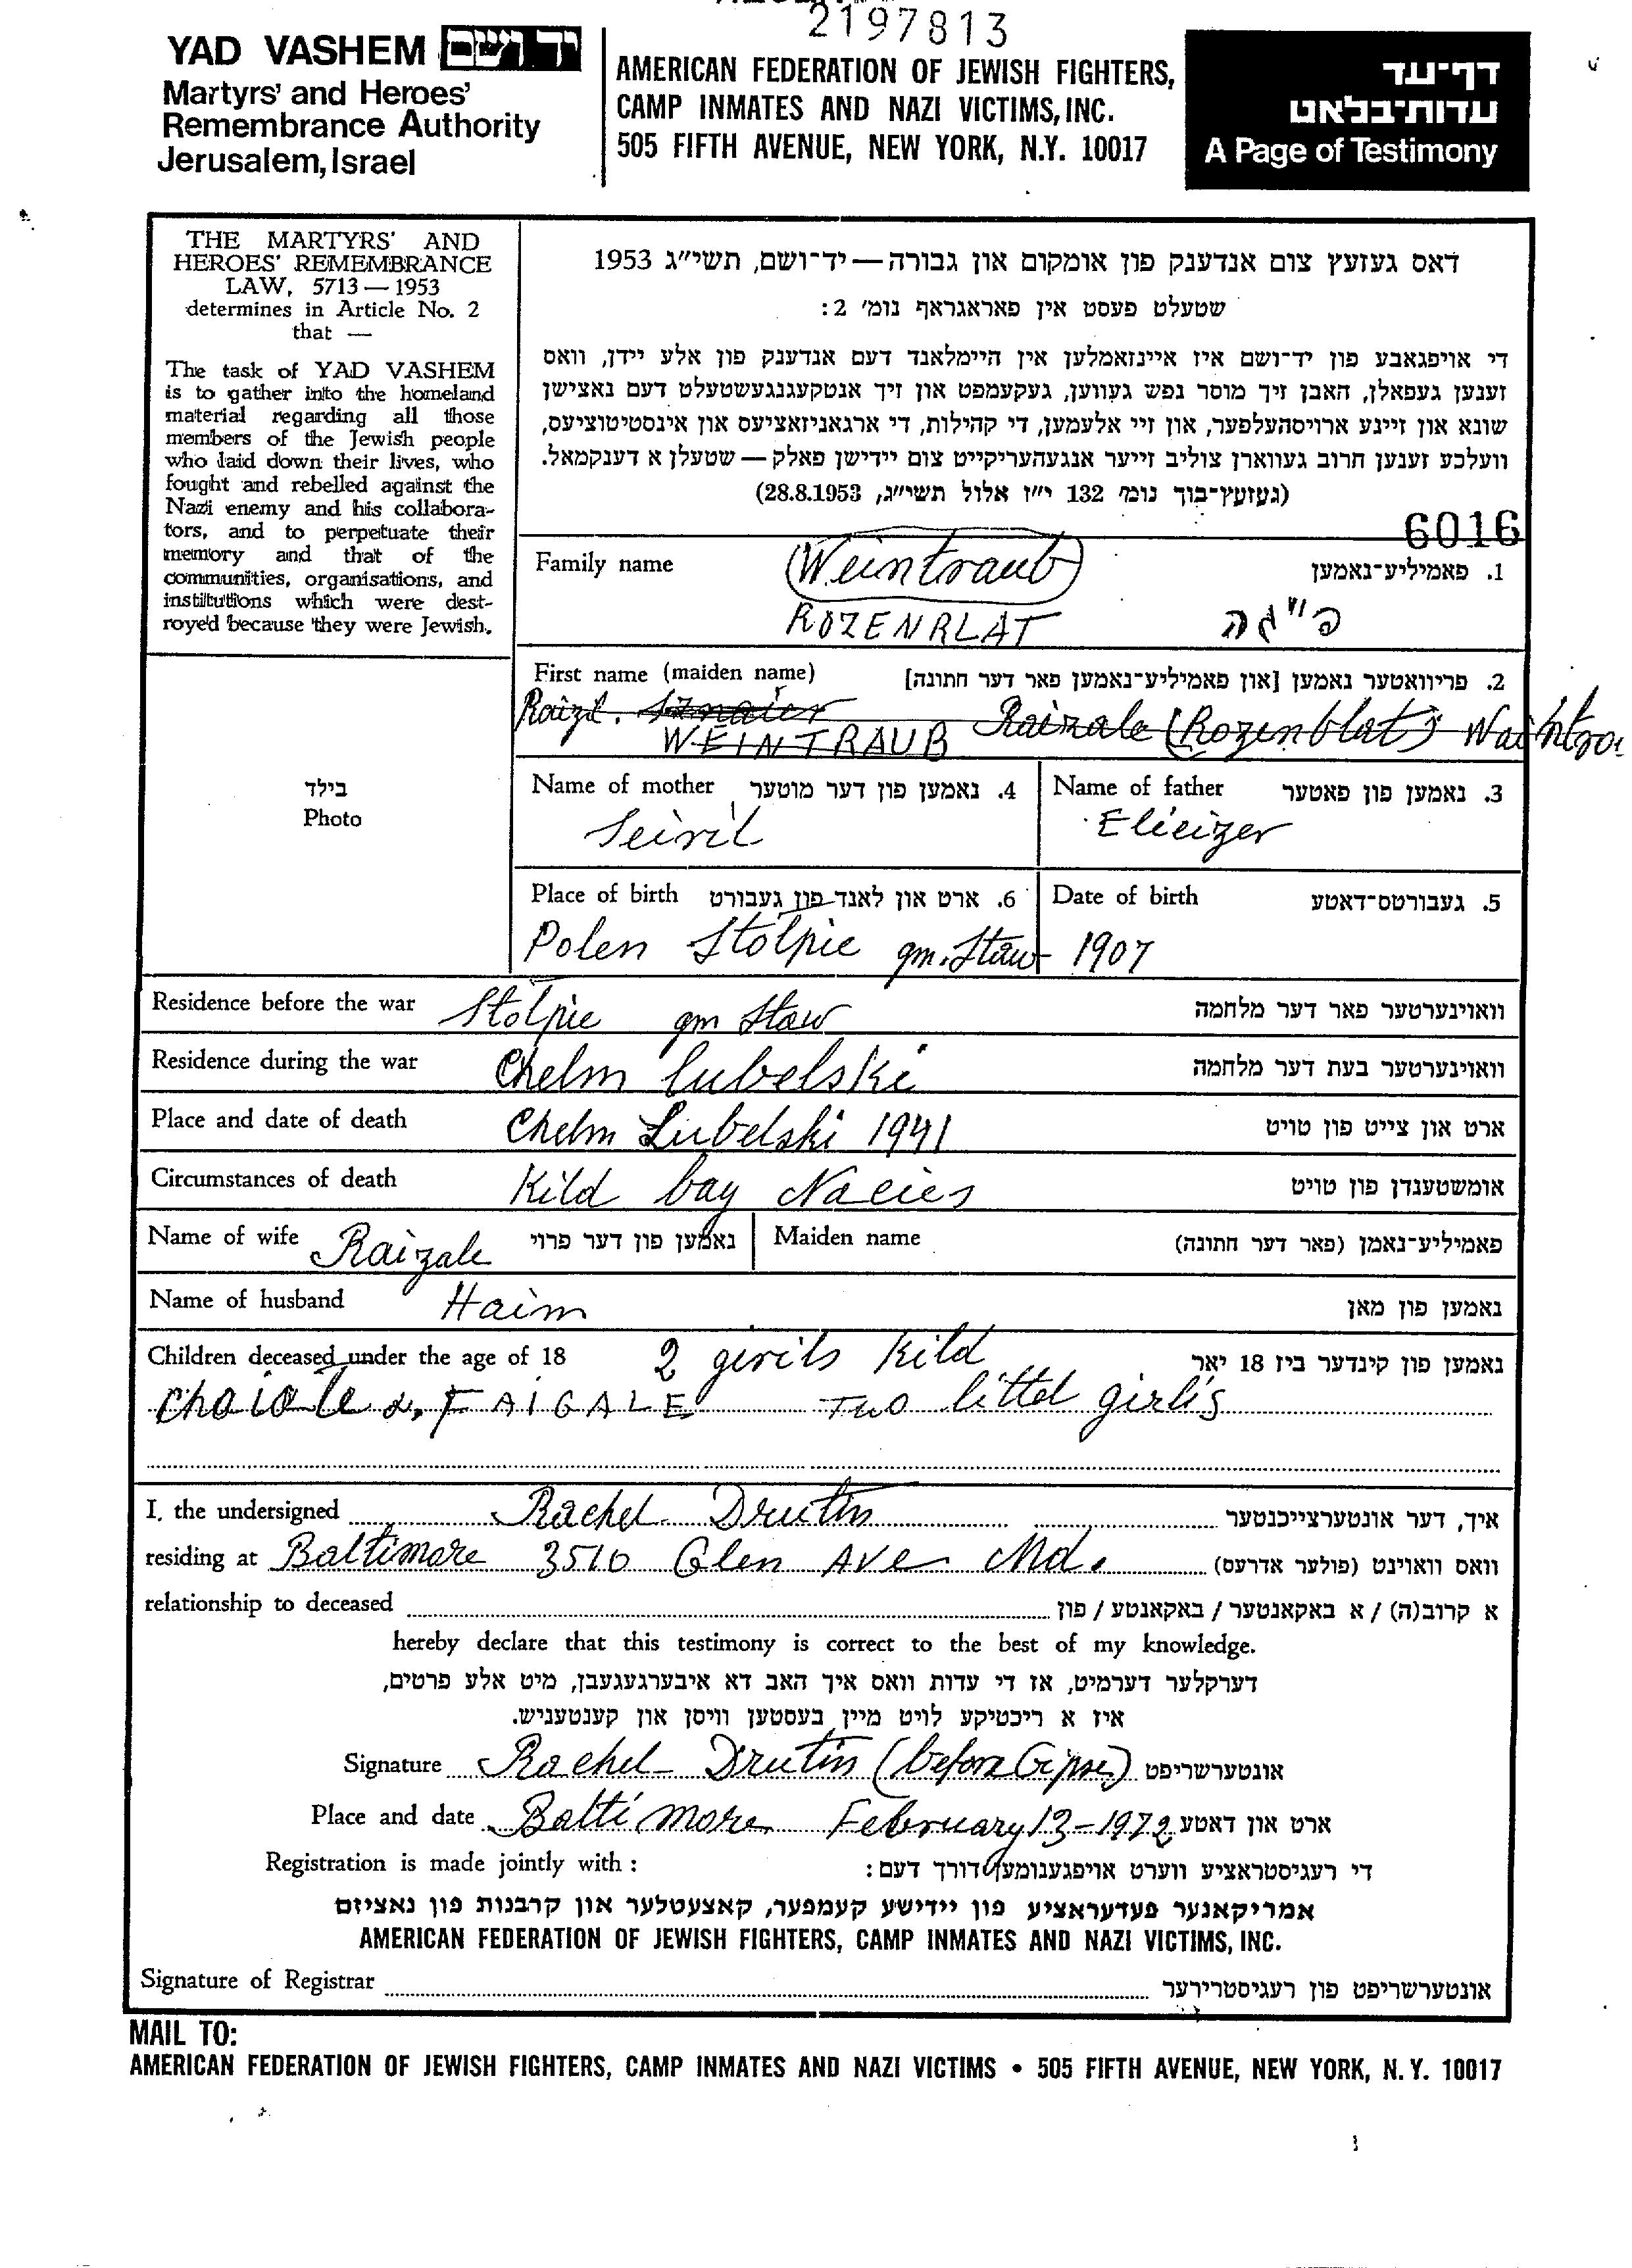 2197813
YAD VASHEM יד ושם
Martyrs' and Heroes'
Remembrance Authority
Jerusalem, Israel
AMERICAN FEDERATION OF JEWISH FIGHTERS,
CAMP INMATES AND NAZI VICTIMS, INC.
505 FIFTH AVENUE, NEW YORK, N.Y. 10017
דף־עד
עדות־בלאט
A Page of Testimony
THE MARTYRS' AND
HEROES' REMEMBRANCE
LAW, 5713 — 1953
determines in Article No. 2
that —
The task of YAD VASHEM
is to gather into the homeland
material regarding all those
members of the Jewish people
who laid down their lives, who
fought and rebelled against the
Nazi enemy and his collabora-
tors, and to perpetuate their
memory and that of the
communities, organisations, and
institutions which were dest-
royed because they were Jewish.
דאס געזעץ צום אנדענק פון אומקום און גבורה — יד־ושם, תשי״ג 1953
שטעלט פעסט אין פאראגראף נומ׳ 2:
די אויפגאבע פון יד־ושם איז איינזאמלען אין היימלאנד דעם אנדענק פון אלע יידן, וואס
זענען געפאלן, האבן זיך מוסר נפש געווען, געקעמפט און זיך אנטקעגנגעשטעלט דעם נאצישן
שונא און זיינע ארויסהעלפער, און זיי אלעמען, די קהילות, די ארגאניזאציעס און אינסטיטוציעס,
וועלכע זענען חרוב געווארן צוליב זייער אנגעהעריקייט צום יידישן פאלק — שטעלן א דענקמאל.
(געזעץ־בוך נומ׳ 132 י״ז אלול תשי״ג, 28.8.1953)
6016
Family name Weintraub 1. פאמיליע־נאמען
ROZENRLAT פ״גה
First name (maiden name) 2. פריוואטער נאמען [און פאמיליע־נאמען פאר דער חתונה]
Raizl. Sznaier Raizale (Rozenblat) Waintrau
WEINTRAUB
Name of mother 4. נאמען פון דער מוטער Name of father 3. נאמען פון פאטער
Elieizer
Place of birth 6. ארט און לאנד פון געבורט Date of birth 5. געבורטס־דאטע
Polen Stolpie gm. Staw 1907
בילד
Photo
Residence before the war Stolpie gm Staw וואוינערטער פאר דער מלחמה
Residence during the war Chelm Lubelski וואוינערטער בעת דער מלחמה
Place and date of death Chelm Lubelski 1941 ארט און צייט פון טויט
Circumstances of death Kild bay Nacies אומשטענדן פון טויט
Name of wife Raizale נאמען פון דער פרוי Maiden name פאמיליע־נאמן (פאר דער חתונה)
Name of husband Haim נאמען פון מאן
Children deceased under the age of 18 2 girils Kild נאמען פון קינדער ביז 18 יאר
Chaiale &. FAIGALE Two littel girls
I, the undersigned Rachel Drutin איך, דער אונטערצייכנטער
residing at Baltimore 3510 Glen Ave Md. וואס וואוינט (פולער אדרעס)
relationship to deceased א קרוב(ה) / א באקאנטער / באקאנטע / פון
hereby declare that this testimony is correct to the best of my knowledge.
דערקלער דערמיט, אז די עדות וואס איך האב דא איבערגעגעבן, מיט אלע פרטים,
איז א ריכטיקע לויט מיין בעסטען וויסן און קענטעניש.
Signature Rachel Drutin (before אונטערשריפט
Place and date Baltimore February 13-1972 ארט און דאטע
Registration is made jointly with: די רעגיסטראציע ווערט אויפגענומען דורך דעם:
אמריקאנער פעדעראציע פון יידישע קעמפער, קאצעטלער און קרבנות פון נאציזם
AMERICAN FEDERATION OF JEWISH FIGHTERS, CAMP INMATES AND NAZI VICTIMS, INC.
Signature of Registrar אונטערשריפט פון רעגיסטרירער
MAIL TO:
AMERICAN FEDERATION OF JEWISH FIGHTERS, CAMP INMATES AND NAZI VICTIMS • 505 FIFTH AVENUE, NEW YORK, N.Y. 10017